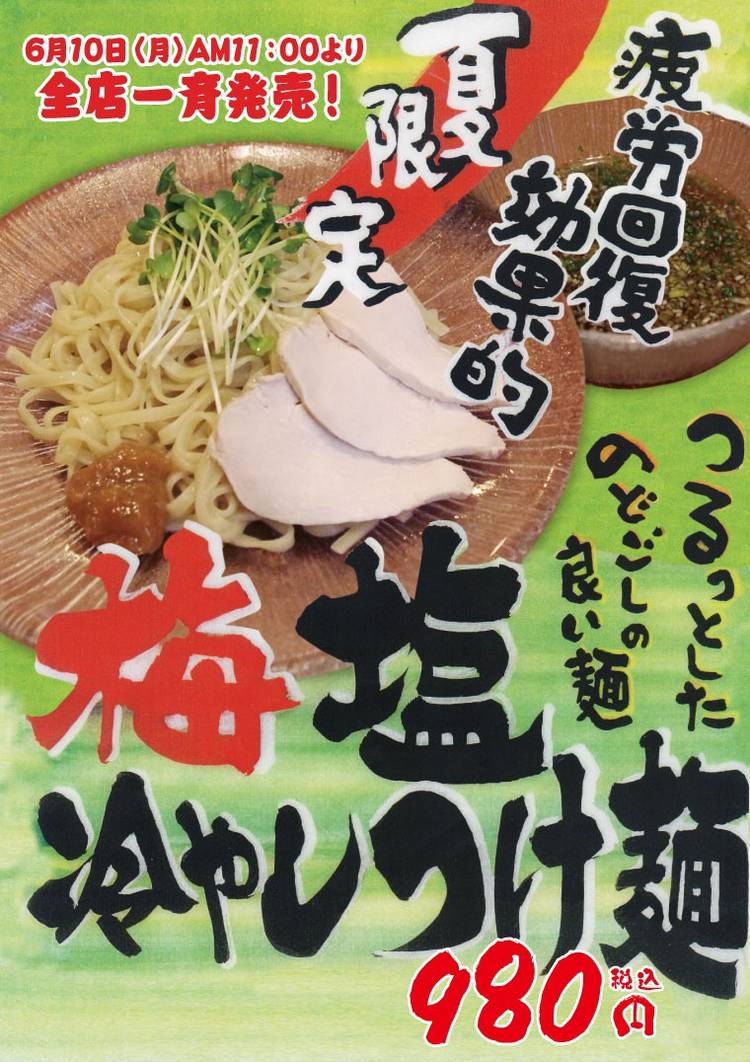 6月10日〈月〉AM11:00より
全店一斉発売！
夏限定
疲労回復
効果的
つるっとした
のどごしの
良い麺
梅塩
冷やしつけ麺
980円
税込